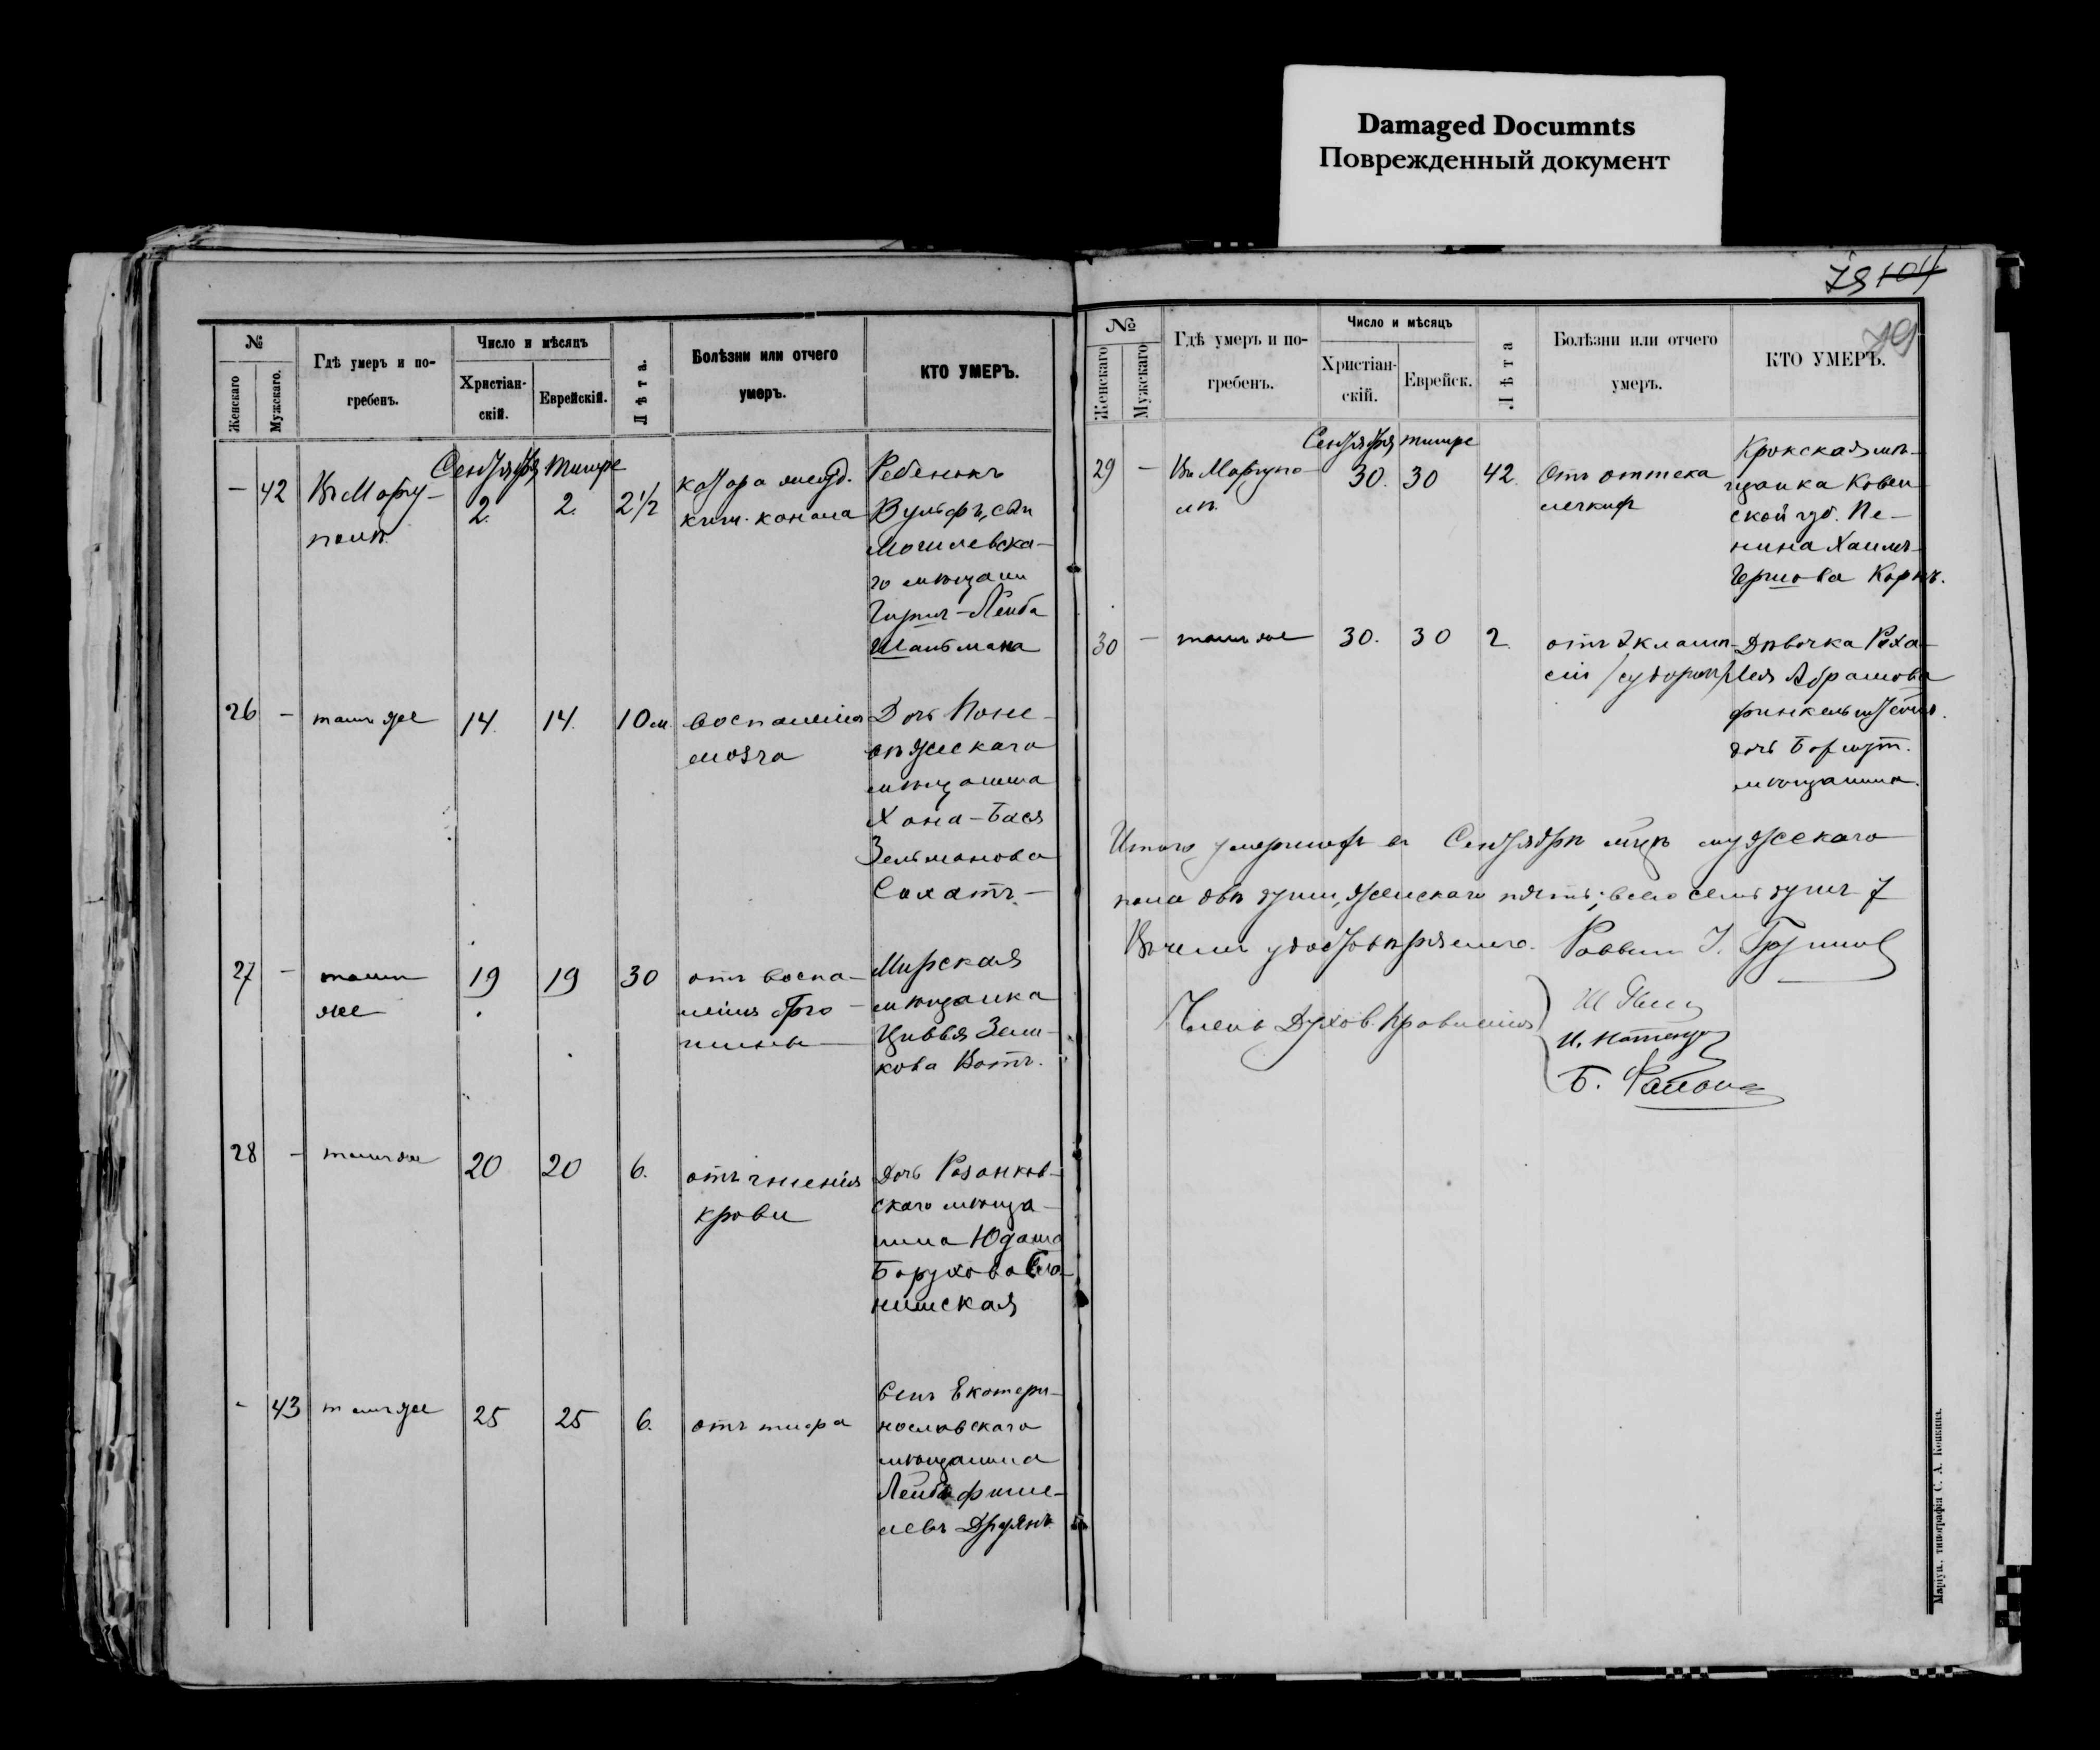 Damaged Documnts
Поврежденный документ
№
Женскаго
Мужскаго.
Гдѣ умеръ и по-
гребенъ.
Число и мѣсяцъ
Христіан-
скій.
Еврейскій.
Лѣта.
Болѣзни или отчего
умеръ.
КТО УМЕРЪ.
Сентября Тишре
— 42 Въ Мариу-
полѣ
2. 2. 2½
канала
Ребенокъ
Вульфъ, сын
Могилевска-
го мѣщани
Гирша-Лейба
Шальмана
26 — тамъ же 14. 14. 10 м. воспаленія
мозга
Дочь Поне-
вѣжскаго
мѣщанина
Хана-Бася
Зельманова
Сахатъ.
27 — тамъ
же
19 19 30 отъ воспа-
ленія брю-
шины
Мирская
мѣщанка
Цивья Зели-
кова Котъ.
28 — тамъ же 20 20 6. отъ гніенія
крови
Дочь Разанков-
скаго мѣща-
нина Юдаша
Борухова
- 43 тамъ же 25 25 6. отъ тифа
Сынъ Екатери-
нославскаго
мѣщанина
Лейба Фише-
левъ
79 104
79
№
Женскаго
Мужскаго
Гдѣ умеръ и по-
гребенъ.
Число и мѣсяцъ
Христіан-
скій.
Еврейск.
Лѣта
Болѣзни или отчего
умеръ.
КТО УМЕРЪ.
Сентября тишре
29 — Въ Мариупо-
лѣ
30. 30 42. Отъ оттека
легкихъ
Крокская мѣ-
щанка Ковен-
ской губ. Пе-
нина Хаимъ-
Гершова Корнъ.
30 — тамъ же 30. 30 2. отъ Эклами-
сіи /судороги/
Дѣвочка Роха-
Лея Абрамова
Финкельштейнъ.
дочь
мѣщанина.
Итого умершихъ въ Сентябрѣ м-цѣ мужскаго
пола двѣ души, женскаго пять, всего семь душъ 7
Въ чемъ удостовѣряемъ. Раввинъ
Члены Духов. Правленія
Маріуп., типографія С. А. Копкина.